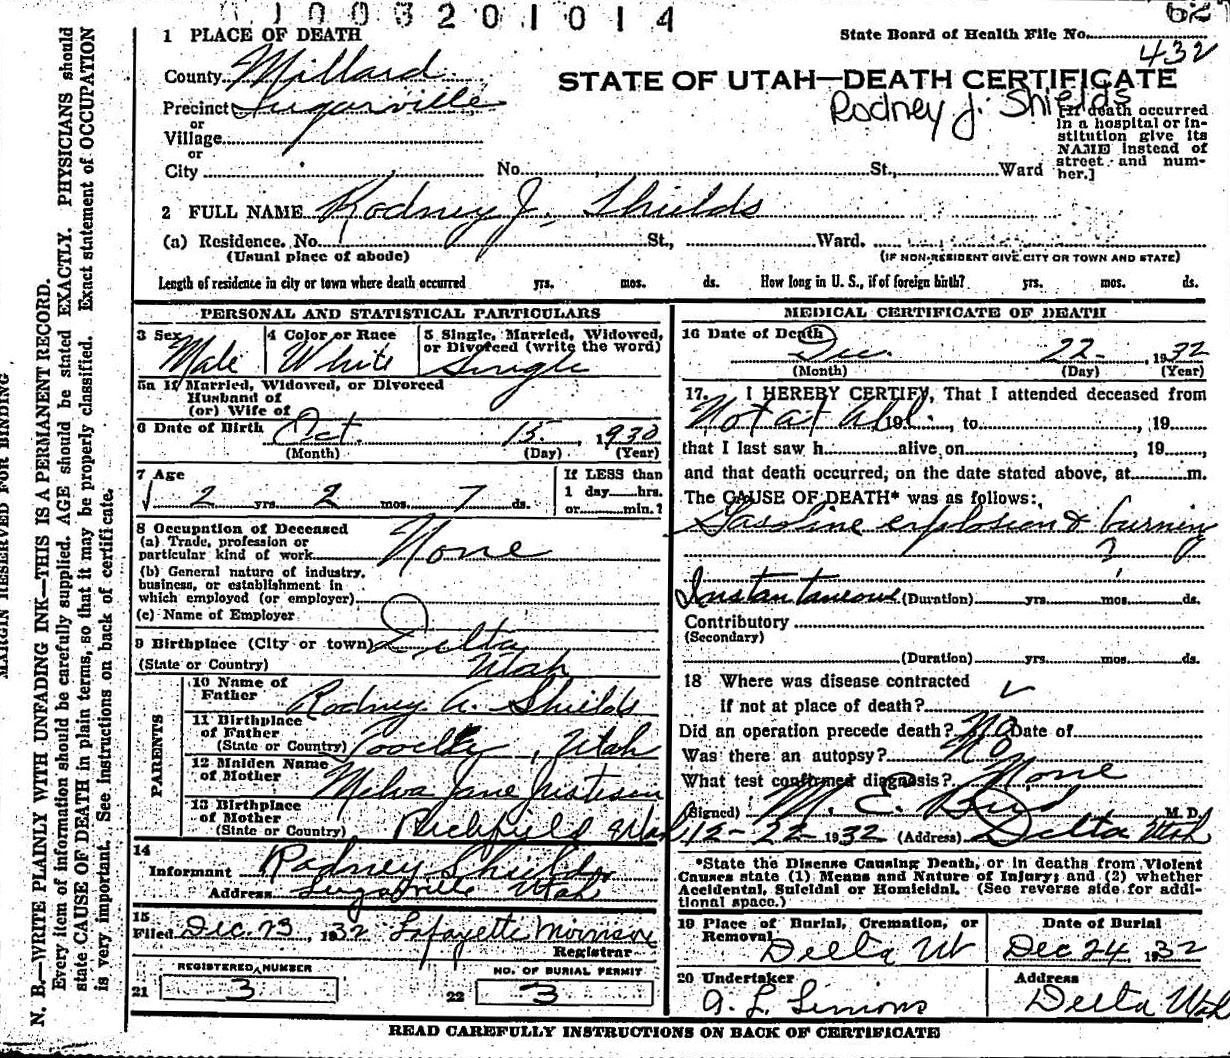 0003201014
1 PLACE OF DEATH
State Board of Health File No.
432
County Millard
STATE OF UTAH—DEATH CERTIFICATE
Precinct Sugarville
Rodney J. Shields
or
Village
or
City No. St., Ward
[If death occurred
in a hospital or in-
stitution give its
NAME instead of
street and num-
ber.]
2 FULL NAME Rodney J. Shields
(a) Residence. No. St., Ward.
(Usual place of abode)
(IF NON-RESIDENT GIVE CITY OR TOWN AND STATE)
Length of residence in city or town where death occurred yrs. mos. ds. How long in U. S., if of foreign birth? yrs. mos. ds.
PERSONAL AND STATISTICAL PARTICULARS
3 Sex Male
4 Color or Race White
5 Single, Married, Widowed,
or Divorced (write the word)
Single
5a If Married, Widowed, or Divorced
Husband of
(or) Wife of
6 Date of Birth Oct. 15, 1930
(Month) (Day) (Year)
7 Age
2 yrs. 2 mos. 7 ds.
If LESS than
1 day hrs.
or min.?
8 Occupation of Deceased
(a) Trade, profession or
particular kind of work None
(b) General nature of industry,
business, or establishment in
which employed (or employer)
(c) Name of Employer
9 Birthplace (City or town) Delta
(State or Country) Utah
PARENTS
10 Name of
Father Rodney A. Shields
11 Birthplace
of Father
(State or Country) , Utah
12 Maiden Name
of Mother Melva Jane
13 Birthplace
of Mother
(State or Country) Richfield Utah
14
Informant Rodney Shields
Address Sugarville Utah
15
Filed Dec. 23, 1932 Lafayette Morrison
Registrar
REGISTERED NUMBER
21 3
NO. OF BURIAL PERMIT
22 3
MEDICAL CERTIFICATE OF DEATH
16 Date of Death
Dec. 22, 1932
(Month) (Day) (Year)
17. I HEREBY CERTIFY, That I attended deceased from
Not at All 19, to, 19
that I last saw h alive on, 19,
and that death occurred, on the date stated above, at m.
The CAUSE OF DEATH* was as follows:
Gasoline explosion & burning
Instantaneous (Duration) yrs. mos. ds.
Contributory
(Secondary)
(Duration) yrs. mos. ds.
18 Where was disease contracted
if not at place of death?
Did an operation precede death? No Date of
Was there an autopsy? No
What test confirmed diagnosis? None
(Signed) M. E. Bird M. D.
12-22-1932 (Address) Delta Utah
*State the Disease Causing Death, or in deaths from Violent
Causes state (1) Means and Nature of Injury; and (2) whether
Accidental, Suicidal or Homicidal. (See reverse side for addi-
tional space.)
19 Place of Burial, Cremation, or
Removal Delta Ut
Date of Burial
Dec 24, 1932
20 Undertaker
A. L. Simons
Address
Delta Utah
READ CAREFULLY INSTRUCTIONS ON BACK OF CERTIFICATE
MARGIN RESERVED FOR BINDING
N. B.—WRITE PLAINLY WITH UNFADING INK—THIS IS A PERMANENT RECORD.
Every item of information should be carefully supplied. AGE should be stated EXACTLY. PHYSICIANS should
state CAUSE OF DEATH in plain terms, so that it may be properly classified. Exact statement of OCCUPATION
is very important. See instructions on back of certificate.